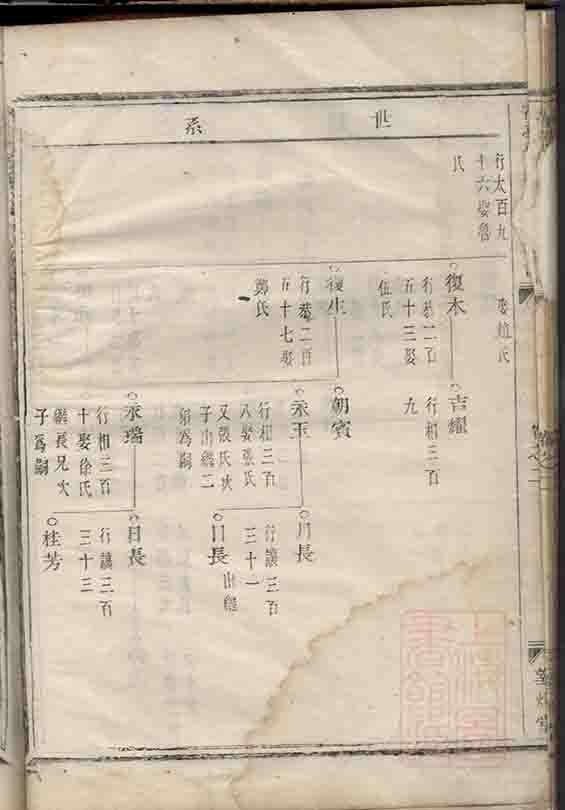 世系
行太百九
十六娶魯
氏
娶杭氏
復木
行恭二百
五十三娶
伍氏
復生
行恭二百
五十七娶
鄭氏
吉耀
行相三百
九
朝賓
永玉
行相三百
八娶張氏
又張氏次
子出繼二
弟為嗣
永瑞
行相三百
十娶徐氏
繼長兄次
子爲嗣
月長
行讓三百
三十一
日長
出繼
日長
行讓三百
三十三
桂芳